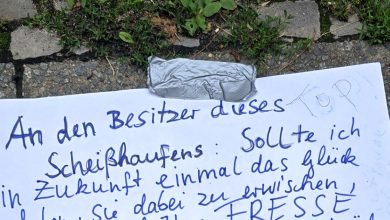 TOP
An den Besitzer dieses
Scheißhaufens: Sollte ich
in Zukunft einmal das Glück
Sie dabei zu erwischen,
FRESSE